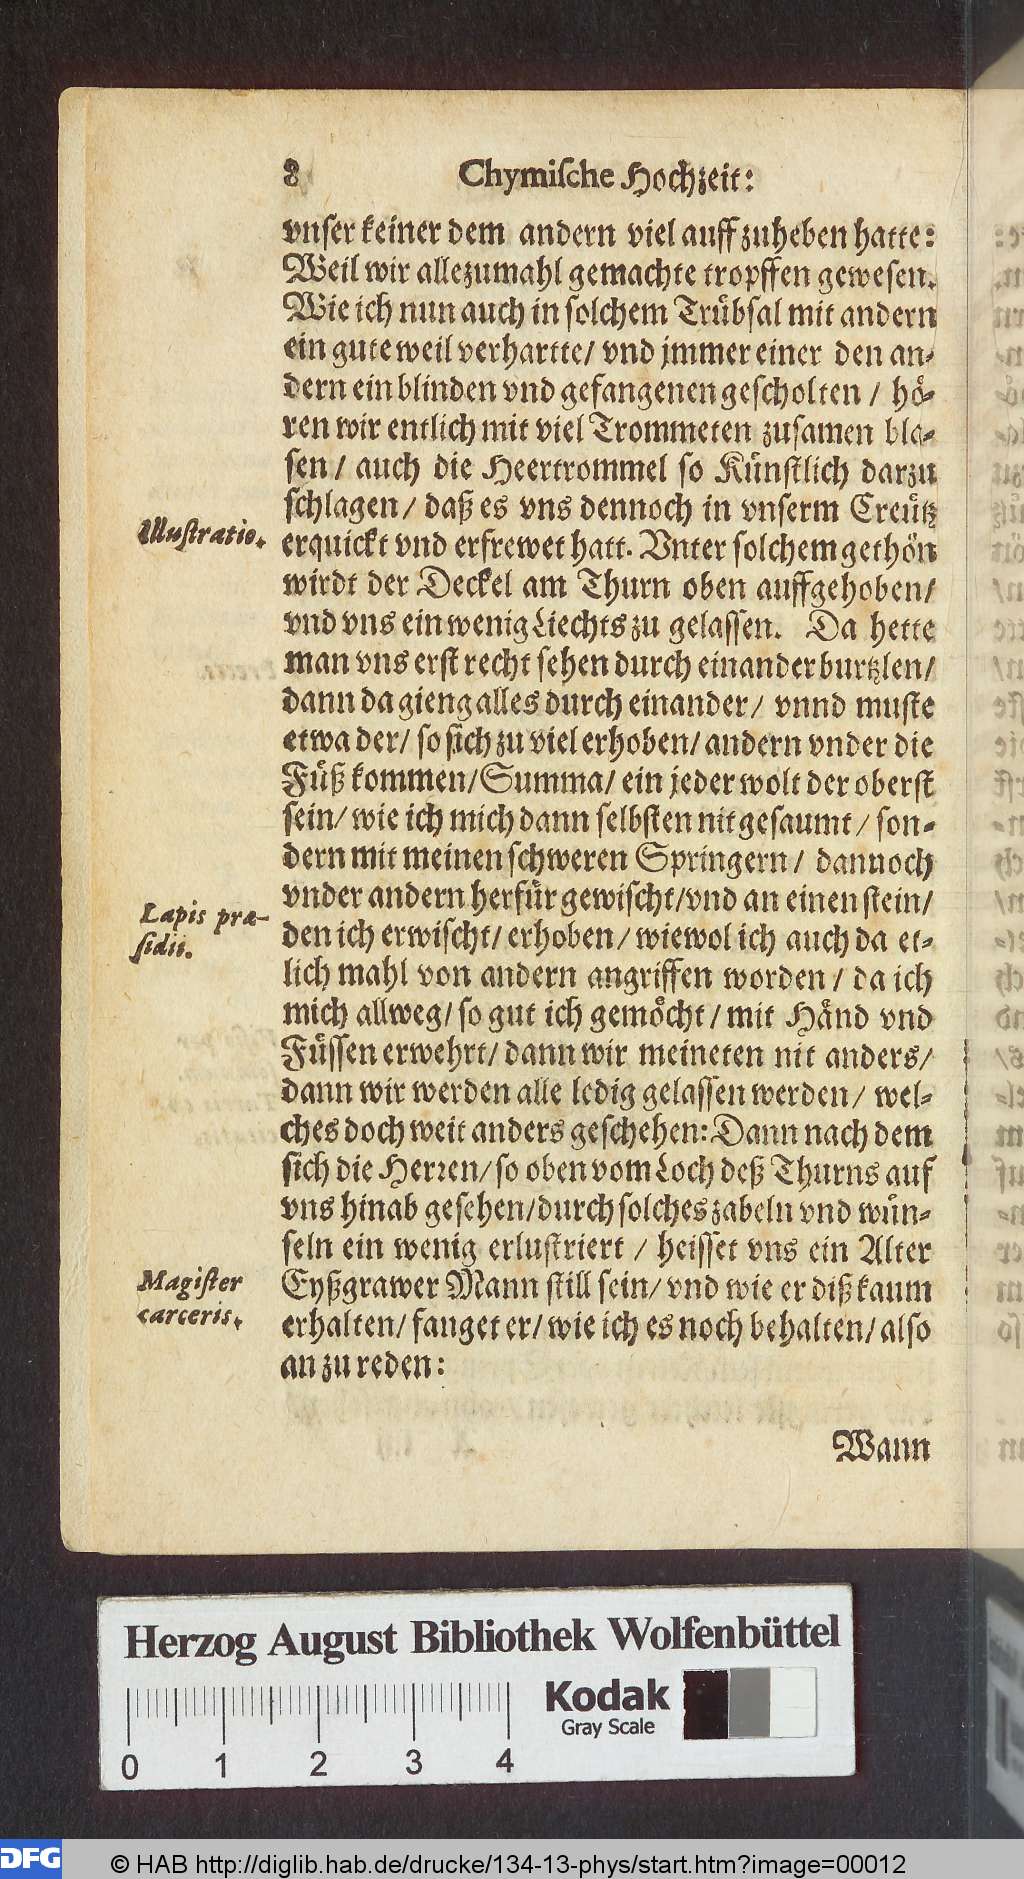 8 Chymiſche Hochzeit:
vnſer keiner dem andern viel auff zuheben hatte:
Weil wir allezumahl gemachte tropffen geweſen.
Wie ich nun auch in ſolchem Truͤbſal mit andern
ein gute weil verhartte/ vnd jmmer einer den an-
dern ein blinden vnd gefangenen geſcholten / hoͤ-
ren wir entlich mit viel Trommeten zuſamen bla-
ſen / auch die Heertrommel ſo Kuͤnſtlich darzu
ſchlagen/ daß es vns dennoch in vnſerm Creuͤtz
Illuſtratio.
erquickt vnd erfrewet hatt. Vnter ſolchem gethoͤn
wirdt der Deckel am Thurn oben auffgehoben/
vnd vns ein wenig Liechts zu gelaſſen. Da hette
man vns erſt recht ſehen durch einander burtzlen/
dann da gieng alles durch einander/ vnnd muſte
etwa der/ ſo ſich zu viel erhoben/ andern vnder die
Fuͤß kommen/ Summa/ ein jeder wolt der oberſt
ſein/ wie ich mich dann ſelbſten nit geſaumt/ ſon-
dern mit meinen ſchweren Springern/ dannoch
vnder andern herfuͤr gewiſcht/ vnd an einen ſtein/
Lapis præ-
ſidii.
den ich erwiſcht/ erhoben/ wiewol ich auch da et-
lich mahl von andern angriffen worden/ da ich
mich allweg/ ſo gut ich gemoͤcht/ mit Haͤnd vnd
Fuͤſſen erwehrt/ dann wir meineten nit anders/
dann wir werden alle ledig gelaſſen werden/ wel-
ches doch weit anders geſchehen: Dann nach dem
ſich die Herꝛen/ ſo oben vom Loch deß Thurns auf
vns hinab geſehen/ durch ſolches zabeln vnd wuͤn-
ſeln ein wenig erluſtriert / heiſſet vns ein Alter
Magiſter
carceris.
Eyßgrawer Mann ſtill ſein/ vnd wie er diß kaum
erhalten/ fanget er/ wie ich es noch behalten/ alſo
an zu reden:
Wann
Herzog August Bibliothek Wolfenbüttel
Kodak
Gray Scale
0 1 2 3 4
DFG © HAB http://diglib.hab.de/drucke/134-13-phys/start.htm?image=00012